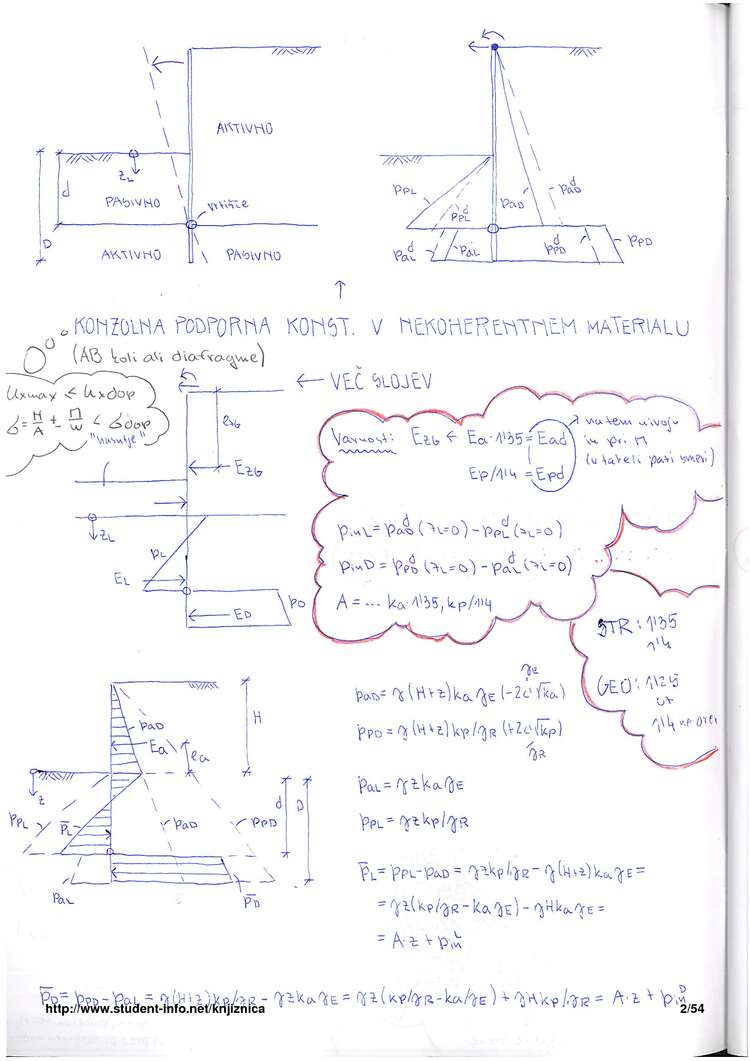 AKTIVNO
zL
d
PASIVNO
vrtišče
D
AKTIVNO
PASIVNO
pPL
pPL^d
paD
paD^d
paL^d
paL
pPD^d
pPD
↑
KONZOLNA PODPORNA KONST. V NEKOHERENTNEM MATERIALU
(AB koli ali diafragme)
← VEČ SLOJEV
uxmax < uxdop
σ = H/A ± M/W < σdop
EZG
zL
pL
EL
ED
pD
Varnosti: EZG ← Ea·1'35 = Ead
Ep/1'4 = Epd
na tem nivoju
in pri M
pinL = paD^d (zL=0) - pPL^d (zL=0)
pinD = pPD^d (zL=0) - paL^d (zL=0)
A = ... ka·1'35, kp/1'4
STR: 1'35
1'4
GEO: 1'25
1'4
H
paD
Ea
ea
z
pPL
p̄L
paD
pPD
d
D
paL
p̄D
paD = γ(H+z) ka γE (-2c'√ka) γE
pPD = γ(H+z) kp/γR (+2c'√kp) /γR
paL = γ z ka γE
pPL = γ z kp/γR
p̄L = pPL - paD = γ z kp/γR - γ(H+z) ka γE =
= γ z (kp/γR - ka γE) - γ H ka γE =
= A·z + pin^L
p̄D = pPD - paL = γ(H+z) kp/γR - γ z ka γE = γ z (kp/γR - ka/γE) + γ H kp/γR = A·z + pin^D
http://www.student-info.net/knjiznica
2/54